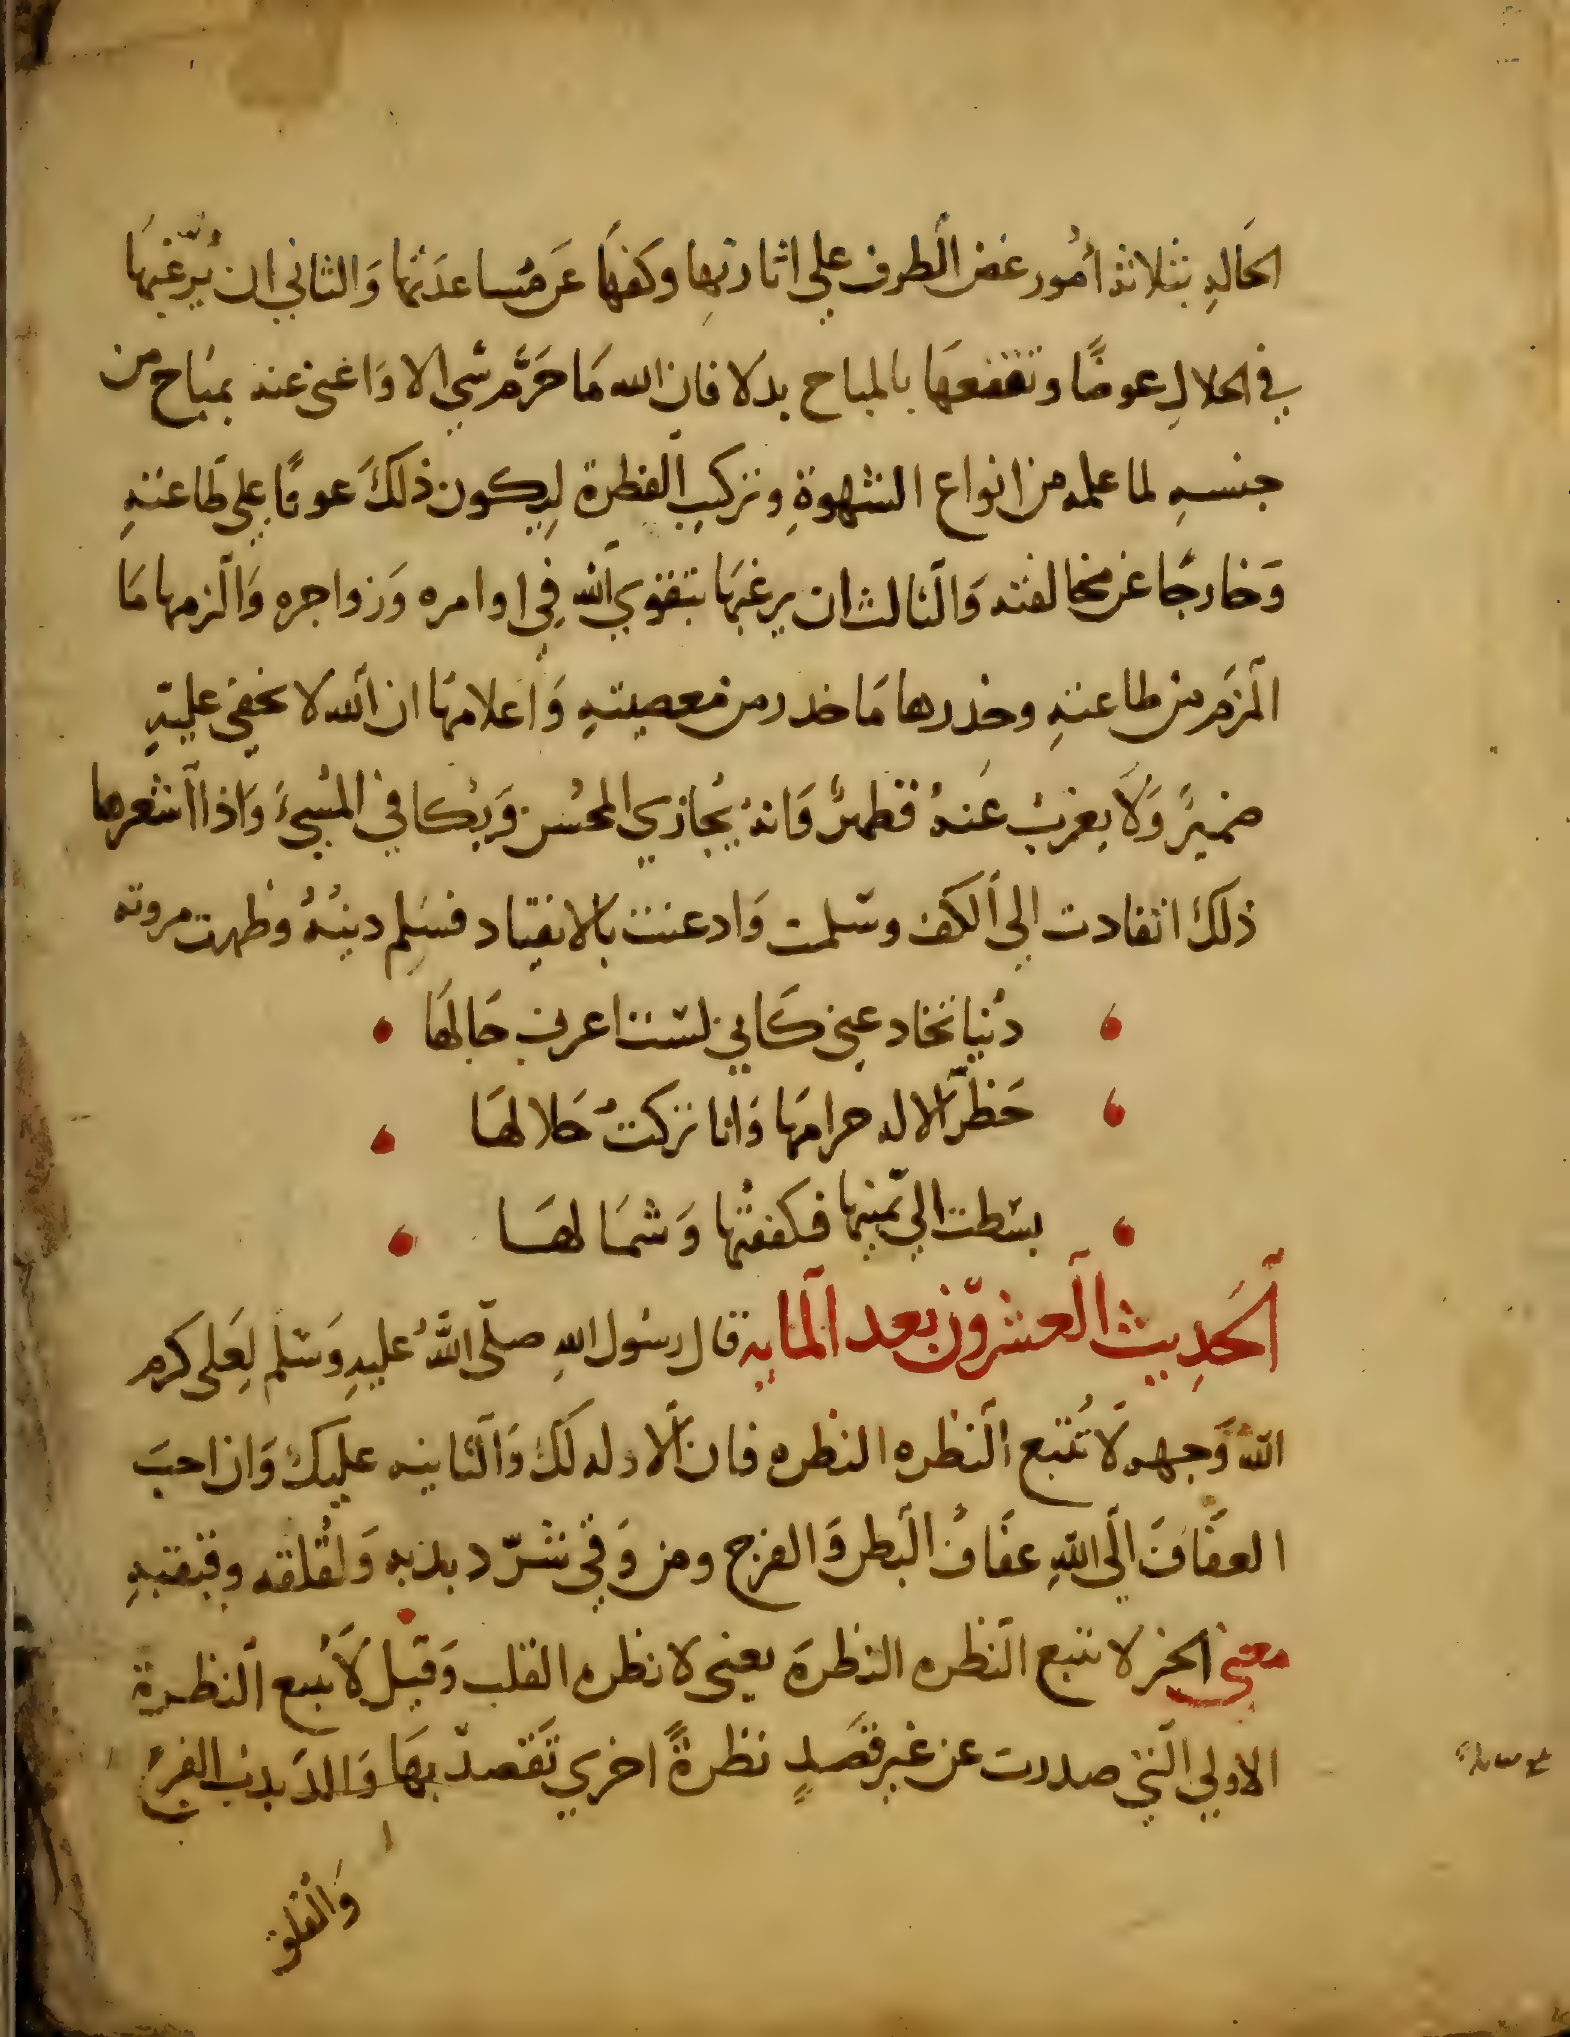 الحَالهِ بثلاثة أمُور غض الطرف علي اثارتها وكفهَا عَن مُساعدَتها وَالثاني ان يُرّغبها
في الحلالِ عوضًا وتقنعهَا بالمباح بدلا فان الله مَا حَرَّم شي الا وَاغني عنه بمبَاح من
جنسهِ لما علمه من انواع الشهوةِ وتركيبِ الفطرة لِيكون ذلكَ عونًا علي طَاعتهِ
وَخارجًا عن مخالفته وَالثالث ان يرغبهَا بتقوي الله فِي اوامره وَزواجره وَالزمها مَا
الزَم من طاعتهِ وحذرها مَا حذر من معصيتهِ وَاعلامهَا ان الله لا يخفي عليهِ
ضميرً وَلَا يعزبُ عَنهُ قطميرٌ وَانهُ يُجازي المحُسن وَيُكافي المُسيءَ وَاذا أشعرها
ذلكَ انقادت الي الكف وسَلمت وَاذعنت بالانقياد فسَلِم دينُهُ وظهرت مروته
دُنيا تخادعني كَاني لسَت اعرف حَالهَا
حَظرَ الاله حرامهَا وَانا تركتُ حَلالهَا
بسَطت الي يَمينها فكففتُها وَشمَالهَا
الحَدِيث العشرون بعد المايه قال رسُول اللهِ صلّى اللَّهُ عليهِ وَسَلم لِعَلى كرم
اللهُ وَجهه لَا تُتبع النظره النظره فان الاوله لكَ وَالثانيه عليكَ وَان احبَ
العفَافَ الَى اللهِ عفَافُ البَطن وَالفرج ومن وَقي شرّ دبدبه وَلقُلقه وقبقبهِ
معني الخبر لا تتبع النظره النظرهَ يعني لا نظره القلب وَقيل لَا تُتبع النظرة
الاولي التي صدرت عن غير قصَدٍ نظرةً اخري تَقصدُ بهَا وَالدَبدبُ الفرجُ
وَالقلق